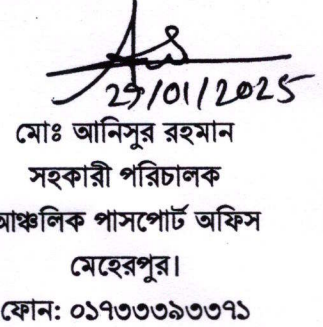 29/01/2025
মোঃ আনিসুর রহমান
সহকারী পরিচালক
আঞ্চলিক পাসপোর্ট অফিস
মেহেরপুর।
ফোন: ০১৭৩৩৩৯৩৩৭১